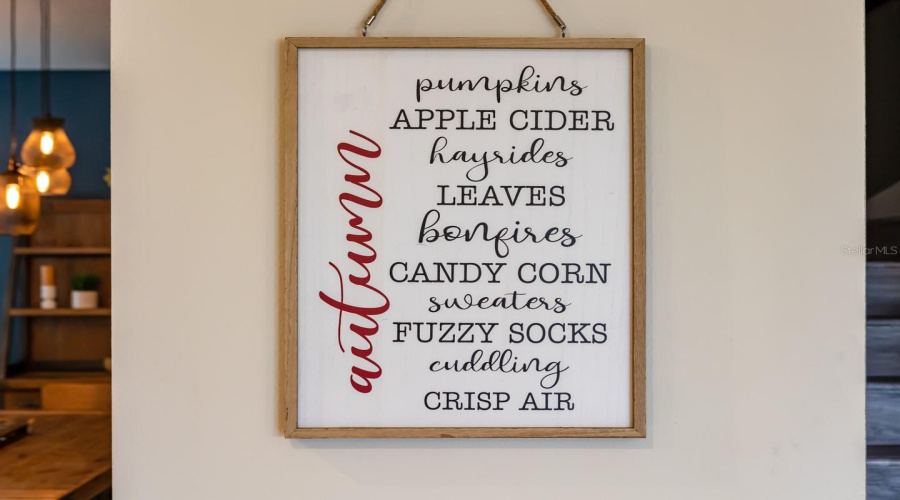 autumn
pumpkins
APPLE CIDER
hayrides
LEAVES
bonfires
CANDY CORN
sweaters
FUZZY SOCKS
cuddling
CRISP AIR
StellarMLS